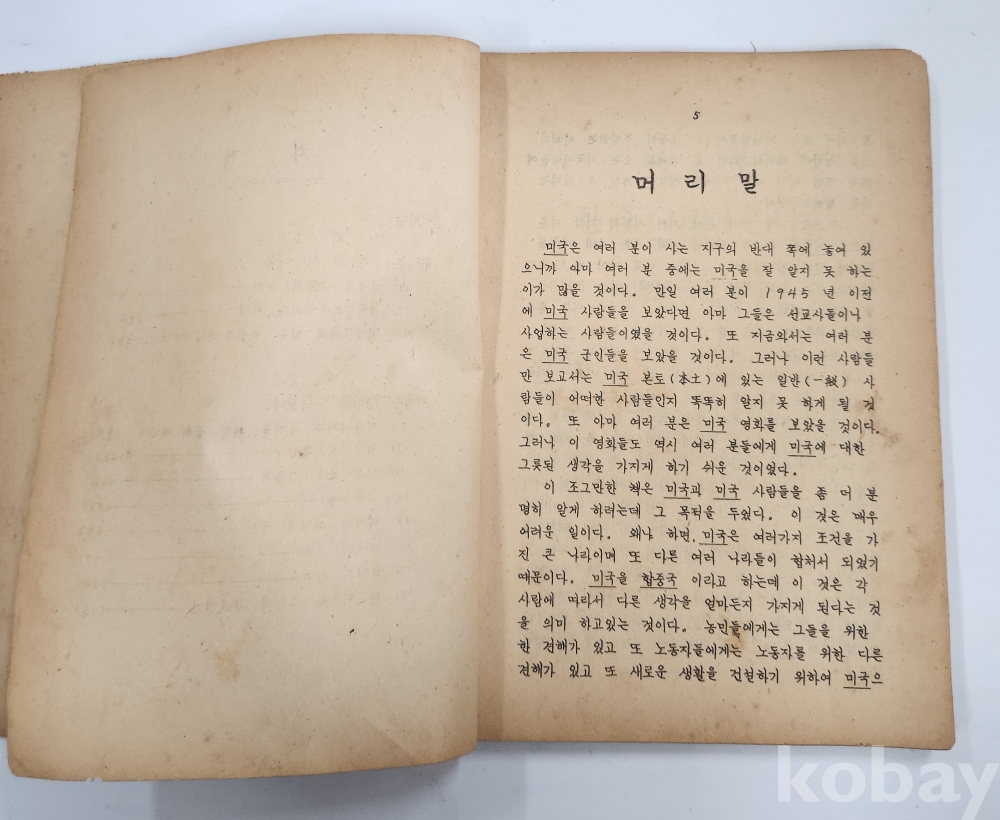 5
머리말
미국은 여러 분이 사는 지구의 반대 쪽에 놓여 있
으니까 아마 여러 분 중에는 미국을 잘 알지 못 하는
이가 많을 것이다. 만일 여러 분이 1945 년 이전
에 미국 사람들을 보았다면 아마 그들은 선교사들이나
사업하는 사람들이였을 것이다. 또 지금와서는 여러 분
은 미국 군인들을 보았을 것이다. 그러나 이런 사람들
만 보고서는 미국 본토(本土)에 있는 일반(一般) 사
람들이 어떠한 사람들인지 똑똑히 알지 못 하게 될 것
이다. 또 아마 여러 분은 미국 영화를 보았을 것이다.
그러나 이 영화들도 역시 여러 분들에게 미국에 대한
그릇된 생각을 가지게 하기 쉬운 것이었다.
이 조그만한 책은 미국과 미국 사람들을 좀 더 분
명히 알게 하려는데 그 목적을 두었다. 이 것은 매우
어려운 일이다. 왜냐 하면, 미국은 여러가지 조건을 가
진 큰 나라이며 또 다른 여러 나라들이 합처서 되었기
때문이다. 미국을 합중국 이라고 하는데 이 것은 각
사람에 따라서 다른 생각을 얼마든지 가지게 된다는 것
을 의미 하고있는 것이다. 농민들에게는 그들을 위한
한 견해가 있고 또 노동자들에게는 노동자를 위한 다른
견해가 있고 또 새로운 생활을 건설하기 위하여 미국으
kobay